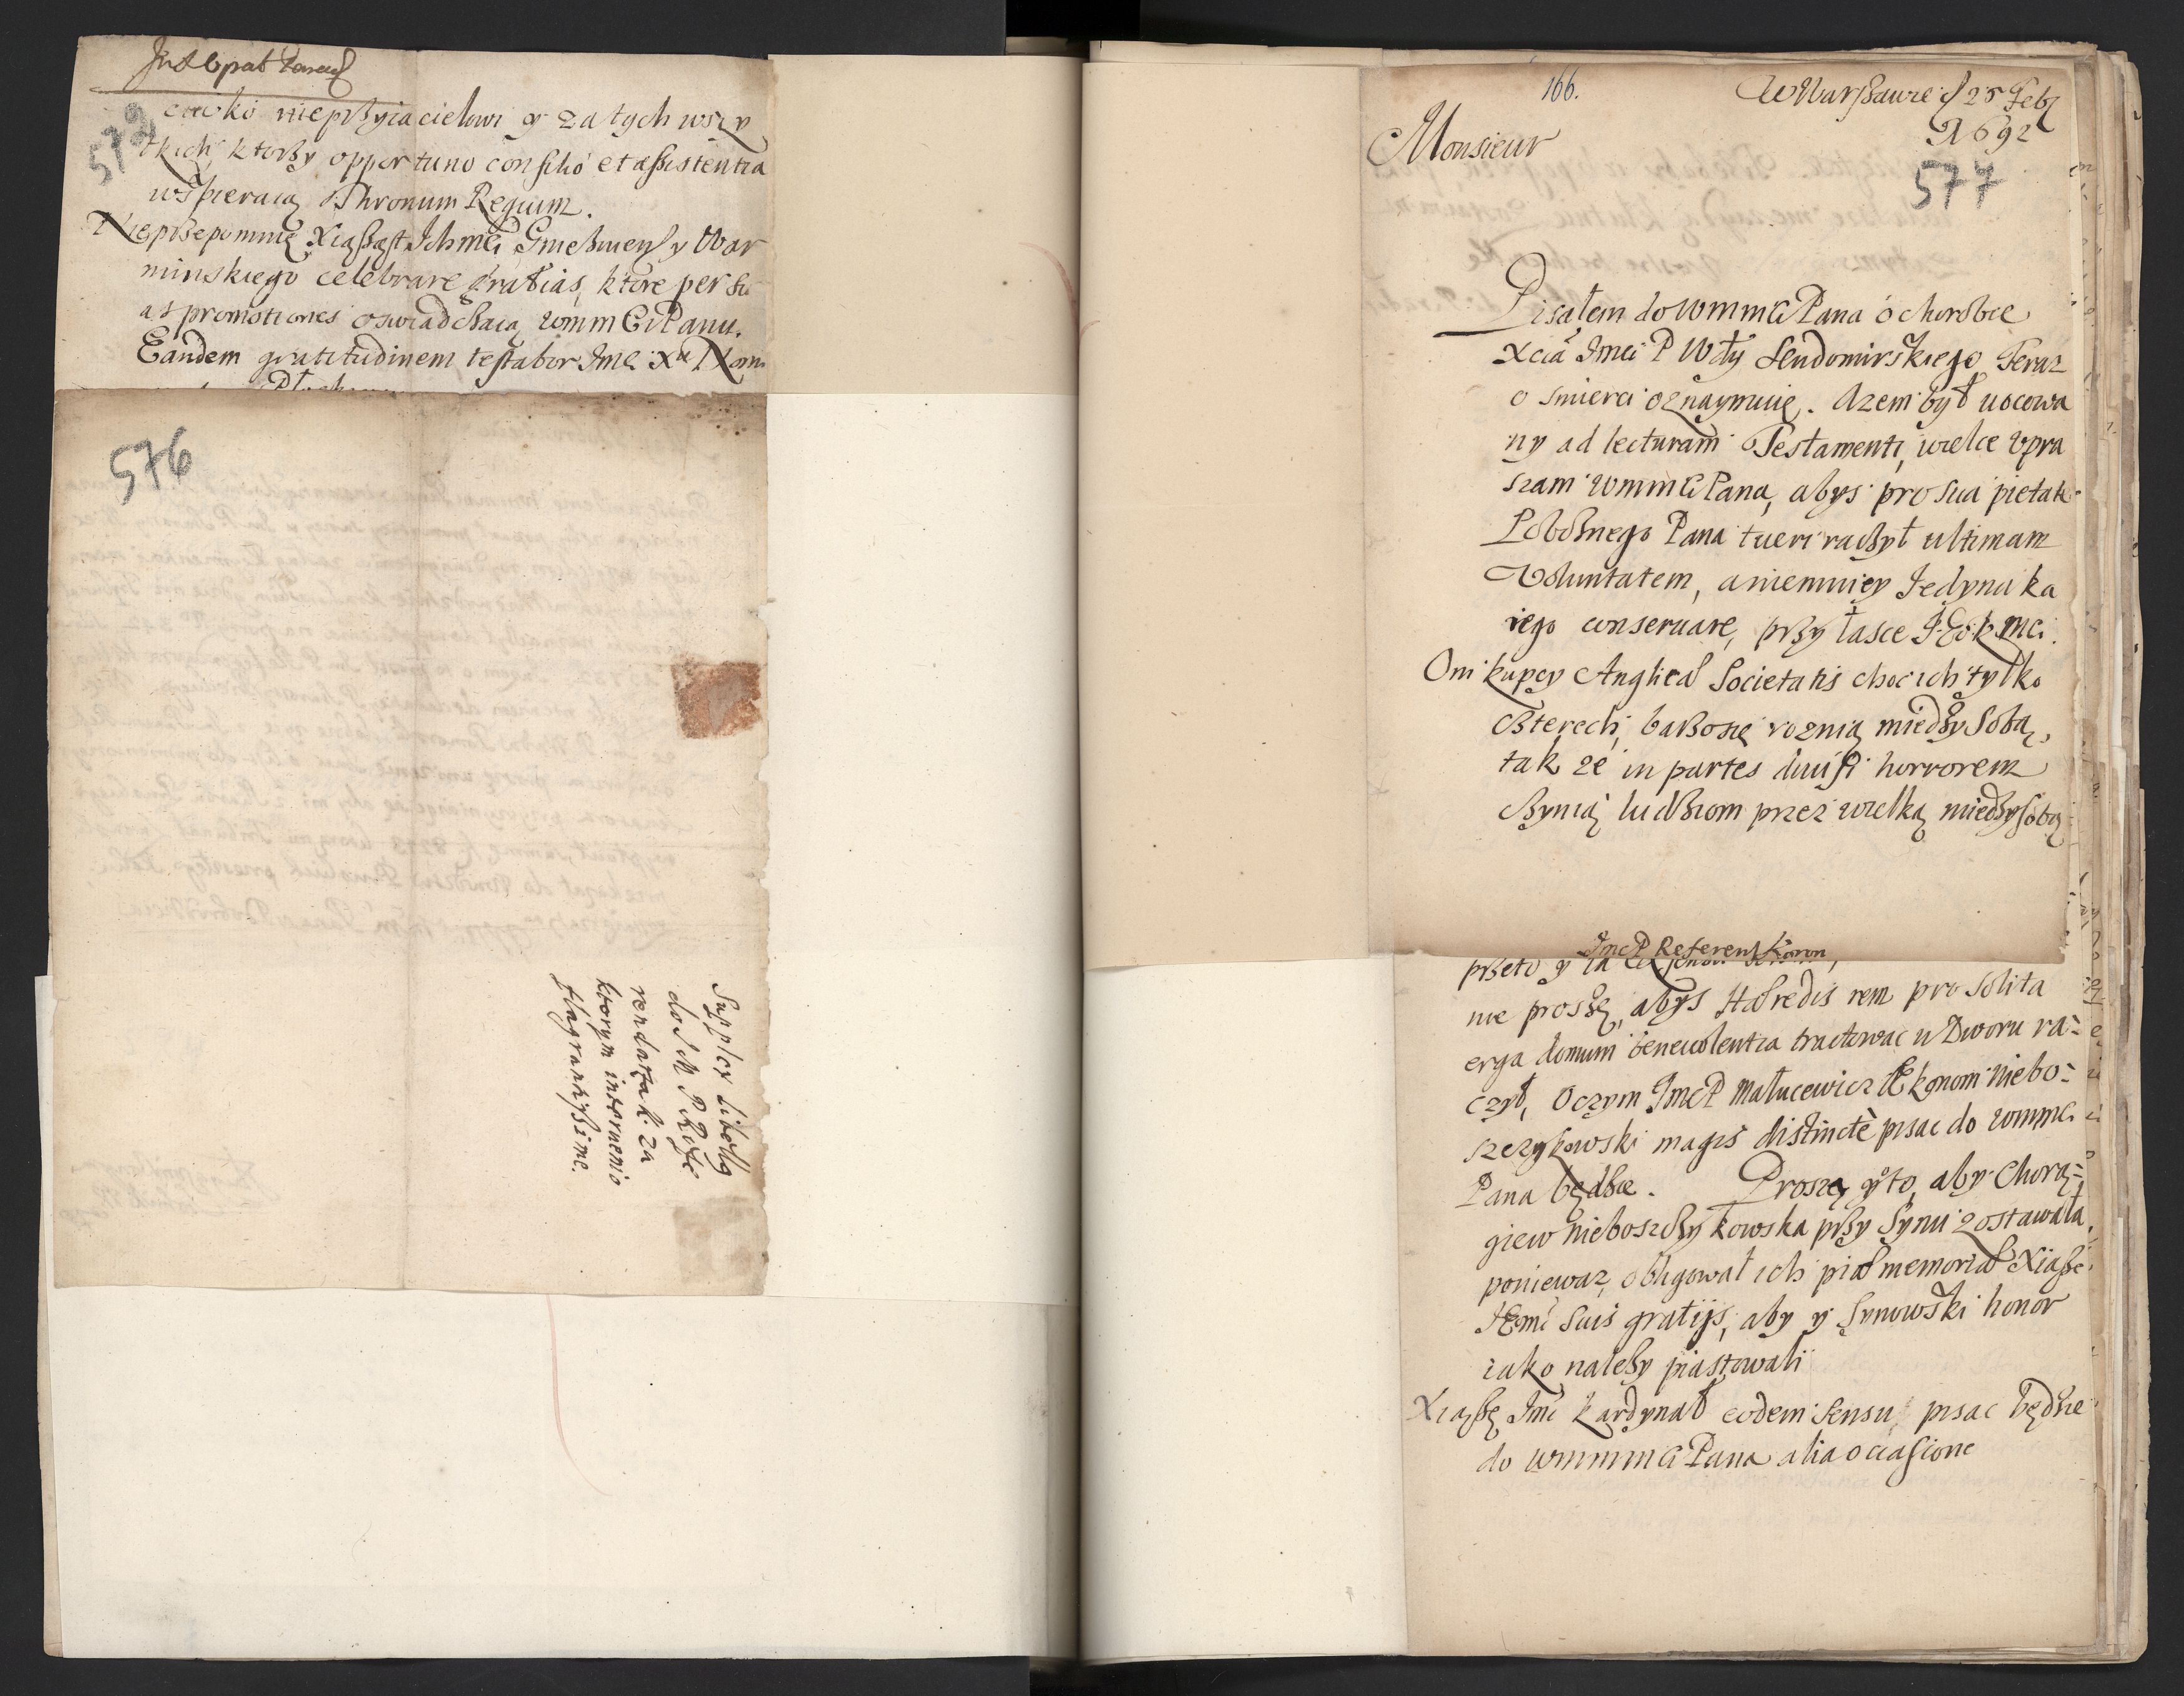 572
ciwko nieprzyiacielowi y za tych wszy
tkich, ktorzy opportuno consilio et assistentia
wspieraią Thronum Regium.
Nieprzepomnię Xiążąt Ichmci Gnieźnień y War
minskiego celebrare gratias, ktore per su
as promotiones oswiadczaią wmmCiPanu.
Eandem gratitudinem testabor Imci Xu Nom
576
Supplex Libellg
do JM P
rendarza k. za
ktorym instruenio
flagrantissime.
166.
w Warszawie d 25 Febr
1692
577
Monsieur
Pisałem do wmmmCi Pana o chorobie
Xcia Imci P Wdy Sendomirskiego Teraz
o smierci oznaymuię. Azem był uocowa
ny ad lecturam Testamenti, wielce upra
szam wmmmCi Pana, abys pro sua pietate
Pobożnego Pana tueri raczył ultimam
Voluntatem, aniemniey Jedynaka
iego conseruare, przy łasce J.K.mci.
Oni kupcy Anglicæ Societatis choc ich tylko
czterech, barzosię roznią między sobą,
tak że in partes diuisi horrorem
czynią ludziom przez wielką międzysobą
ImcP Referent Koron
przeto y ia
nie proszę, abys Hæredis rem pro solita
erga domum beneuolentia tractowac u Dworu ra=
czył, Oczym ImcP Matucewicz Ekonom niebo=
szczykowski magis distinctè pisac do wmmci
Pana będzie. Proszę y o to, aby Chorą=
giew nieboszczykowska przy Synu zostawała,
poniewaz, obligował ich piæ memoriæ Xiąże
JEmć suis gratijs, aby y Synowski honor
iako należy piastowali
Xiążę Imć Kardynał eodem sensu pisac będzie
do wmmmCi Pana alia occasione